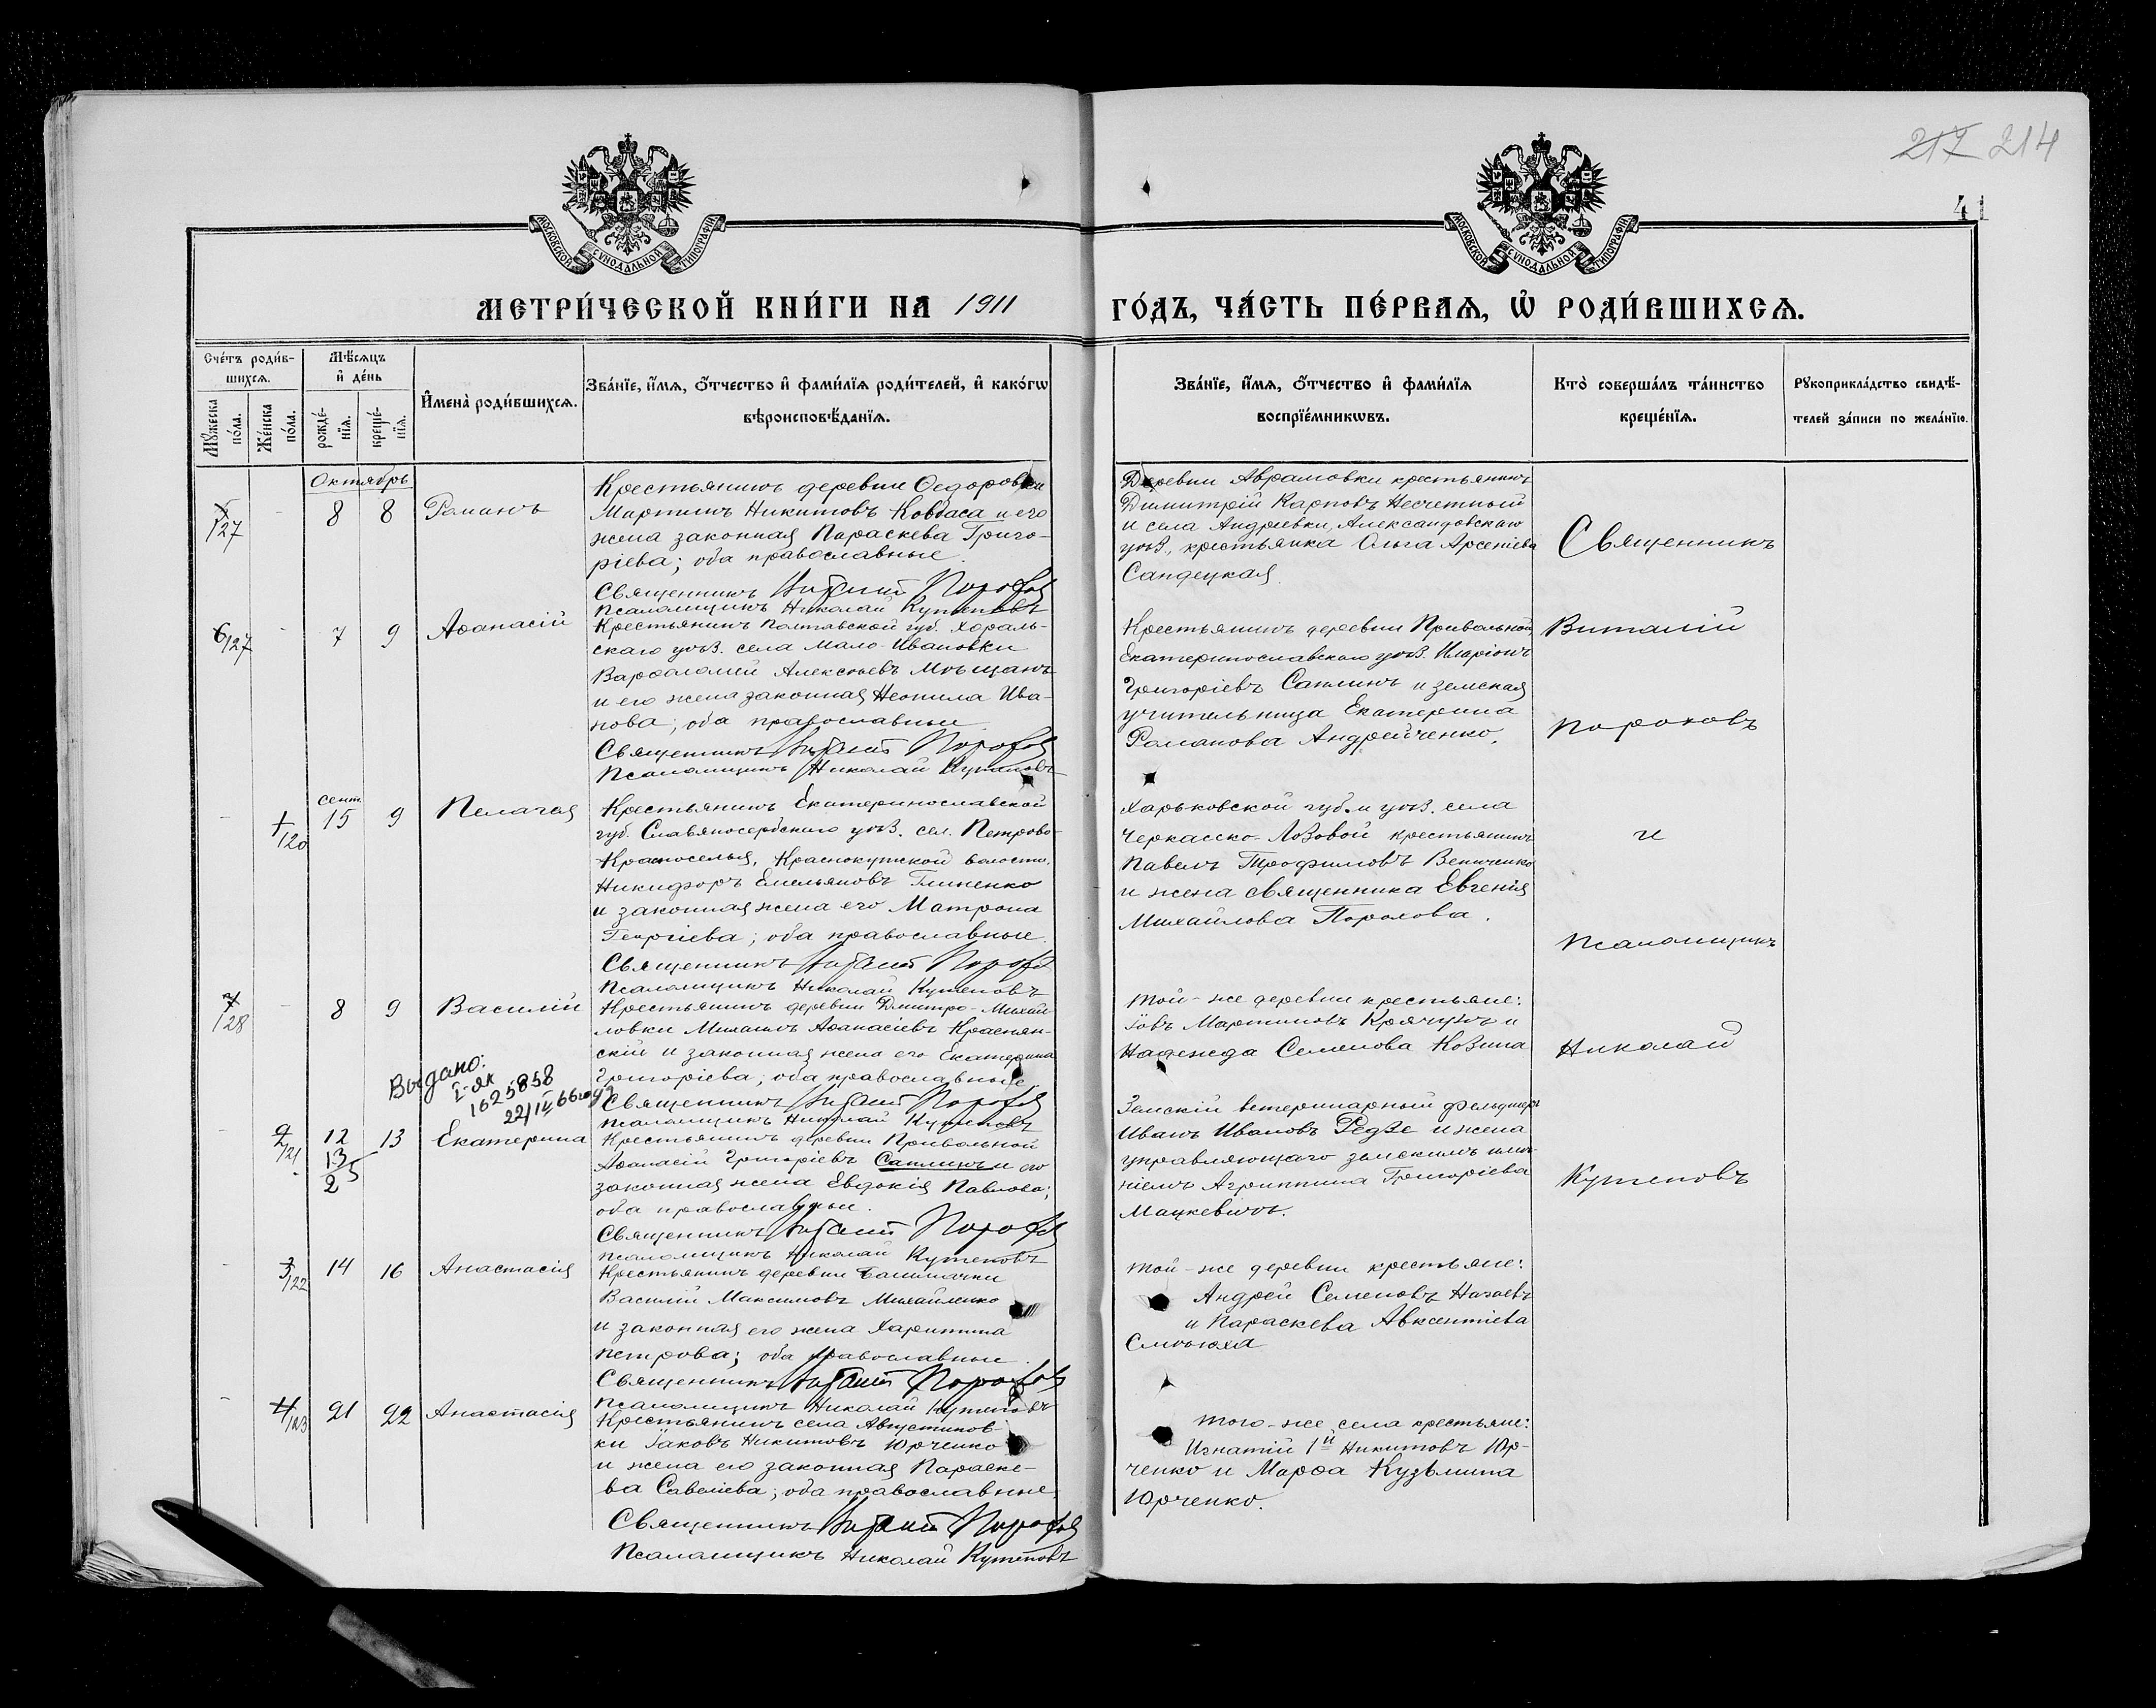 217 214
41
МОСКОВСКОЙ СѴНОДАЛЬНОЙ ТИПОГРАФІИ
МОСКОВСКОЙ СѴНОДАЛЬНОЙ ТИПОГРАФІИ
МЕТРИ́ЧЕСКОЙ КНИ́ГИ НА 1911
ГО́ДЪ, ЧА́СТЬ ПЕ́РВАѦ, Ѡ҆ РОДИ́ВШИХСѦ.
Сче́тъ роди́в-
шихсѧ.
Мꙋ́жеска по́ла.
Же́нска по́ла.
Мѣ́сѧцъ
и҆ де́нь
рожде́-
нїѧ.
креще́-
нїѧ.
И҆мена̀ роди́вшихсѧ.
Зва́нїе, и҆́мѧ, ѻ҆́тчество и҆ фами́лїѧ роди́телей, и҆ како́гѡ
вѣроисповѣ́данїѧ.
Зва́нїе, и҆́мѧ, ѻ҆́тчество и҆ фами́лїѧ
воспрїе́мникѡвъ.
Кто̀ соверша́лъ та́инство
креще́нїѧ.
Рꙋкоприкла́дство свидѣ́-
телей за́писи по жела́нїю.
Октябрь
5/127 - 8 8 Романъ
Крестьянинъ деревни Ѳедоровки
Мартинъ Никитовъ Ковбаса и его
жена законная Параскева Григо-
ріева; оба православные.
Священникъ Виталій Пороховъ
Псаломщикъ Николай Кутеповъ
Деревни Аврамовки крестьянинъ
Димитрій Карповъ Несчетный
и села Андреевки, Александровскаго
уѣз., крестьянка Ольга Арсеніева
Сандецкая.
Священникъ
6/127 - 7 9 Аѳанасій
Крестьянинъ Полтавской губ. Хороль-
скаго уѣз. села Мало-Ивановки
Варѳоломей Алексѣевъ Мѣщанъ
и его жена законная Неонила Ива-
нова; оба православные
Священникъ Виталій Пороховъ
Псаломщикъ Николай Кутеповъ
Крестьянинъ деревни Привольной,
Екатеринославскаго уѣз. Иларіонъ
Григоріевъ Саплинъ и земская
учительница Екатерина
Романова Андрейченко.
Виталій
Пороховъ
- 1/120 сент. 15 9 Пелагея
Крестьянинъ Екатеринославской
губ. Славяносербскаго уѣз. сел. Петрово-
Красноселья, Краснокутской волости,
Никифоръ Емельяновъ Глиненко
и законная жена его Матрона
Георгіева; оба православные.
Священникъ Виталій Пороховъ
Псаломщикъ Николай Кутеповъ
Харьковской губ. и уѣз. села
Черкасско-Лозовой крестьянинъ
Павелъ Трофимовъ Величенко
и жена священника Евгенія
Михайлова Порохова.
и
Псаломщикъ
7/128 - 8 9 Василій
Крестьянинъ деревни Дмитро-Михай-
ловки Михаилъ Аѳанасіевъ Краснян-
скій и законная жена его Екатерина
Григоріева; оба православные
Священникъ Виталій Пороховъ
Псаломщикъ Николай Кутеповъ
Той-же деревни крестьяне:
Іовъ Мартиновъ Крячунъ и
Надежда Семенова Козина
Николай
Выдано:
I-як
1625858
22/IV 66 году
- 2/121 12 13 Екатерина
13
25
Крестьянинъ деревни Привольной
Аѳанасій Григоріевъ Саплинъ и его
законная жена Евдокія Павлова;
оба православные.
Священникъ Виталій Пороховъ
Псаломщикъ Николай Кутеповъ
Земскій ветеринарный фельдшеръ
Иванъ Ивановъ Редзе и жена
управляющаго земскимъ имѣ-
ніемъ Агриппина Григоріева
Мацкевичъ.
Кутеповъ
- 3/122 14 16 Анастасія
Крестьянинъ деревни Башмачки
Василій Максимовъ Михайленко
и законная его жена Харитина
Петрова; оба православные.
Священникъ Виталій Пороховъ
Псаломщикъ Николай Кутеповъ
Той-же деревни крестьяне:
Андрей Семеновъ Ногаевъ
и Параскева Авксентіева
- 4/123 21 22 Анастасія
Крестьянинъ села Августинов-
ки Іаковъ Никитовъ Юрченко
и жена его законная Параске-
ва Савеліева; оба православные.
Священникъ Виталій Пороховъ
Псаломщикъ Николай Кутеповъ
Того-же села крестьяне:
Игнатій 1й Никитовъ Юр-
ченко и Марѳа Кузьмина
Юрченко.